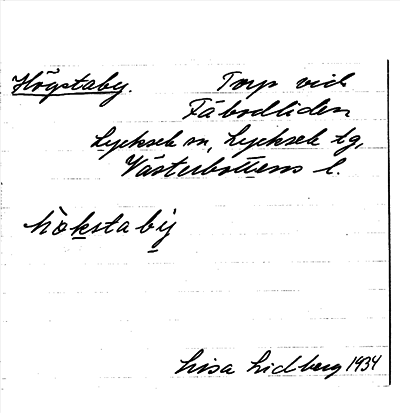 Högstaby. Torp vid
Fäbodliden
Lycksele sn, Lycksele tg,
Västerbottens l.
hökstabÿ
Lisa Lidberg 1934